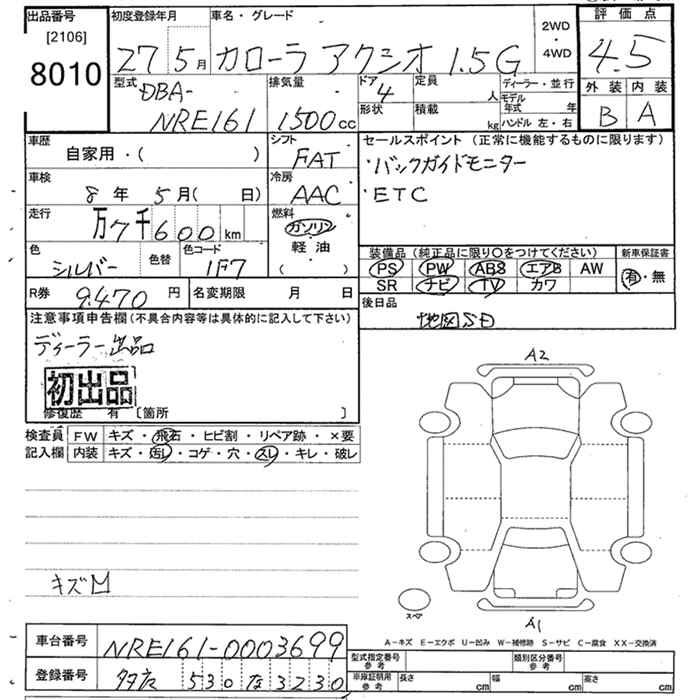 出品番号
[2106]
8010
初度登録年月
27 5月
車名・グレード
カローラ アクシオ 1.5G
2WD
・
4WD
評価点
4.5
外装 内装
B A
型式
DBA-
NRE161
排気量
1500cc
ドア
4
形状
定員
人
積載
kg
ディーラー・並行
モデル
年式 年
ハンドル 左・右
車歴
自家用・( )
シフト
FAT
車検
8年 5月( 日)
冷房
AAC
走行
万7千600km
燃料
ガソリン
軽油
( )
色
シルバー
色替
色コード
1F7
R券 9,470円
名変期限 月 日
セールスポイント (正常に機能するものに限ります)
・バックガイドモニター
・ETC
装備品 (純正品に限り○をつけてください)
PS PW ABS エアB AW
SR ナビ TV カワ
新車保証書
有・無
後日品
地図SD
注意事項申告欄 (不具合内容等は具体的に記入して下さい)
ディーラー出品
初出品
修復歴 有 [箇所 ]
検査員 FW キズ・飛石・ヒビ割・リペア跡・×要
記入欄 内装 キズ・汚レ・コゲ・穴・スレ・キレ・破レ
キズM
A2
スペア
A1
A-キズ E-エクボ U-凹み W-補修跡 S-サビ C-腐食 XX-交換済
車台番号 NRE161-0003699
登録番号 530 な 3230
型式指定番号
参考
類別区分番号
参考
車庫証明用
参考
長さ cm 幅 cm 高さ cm